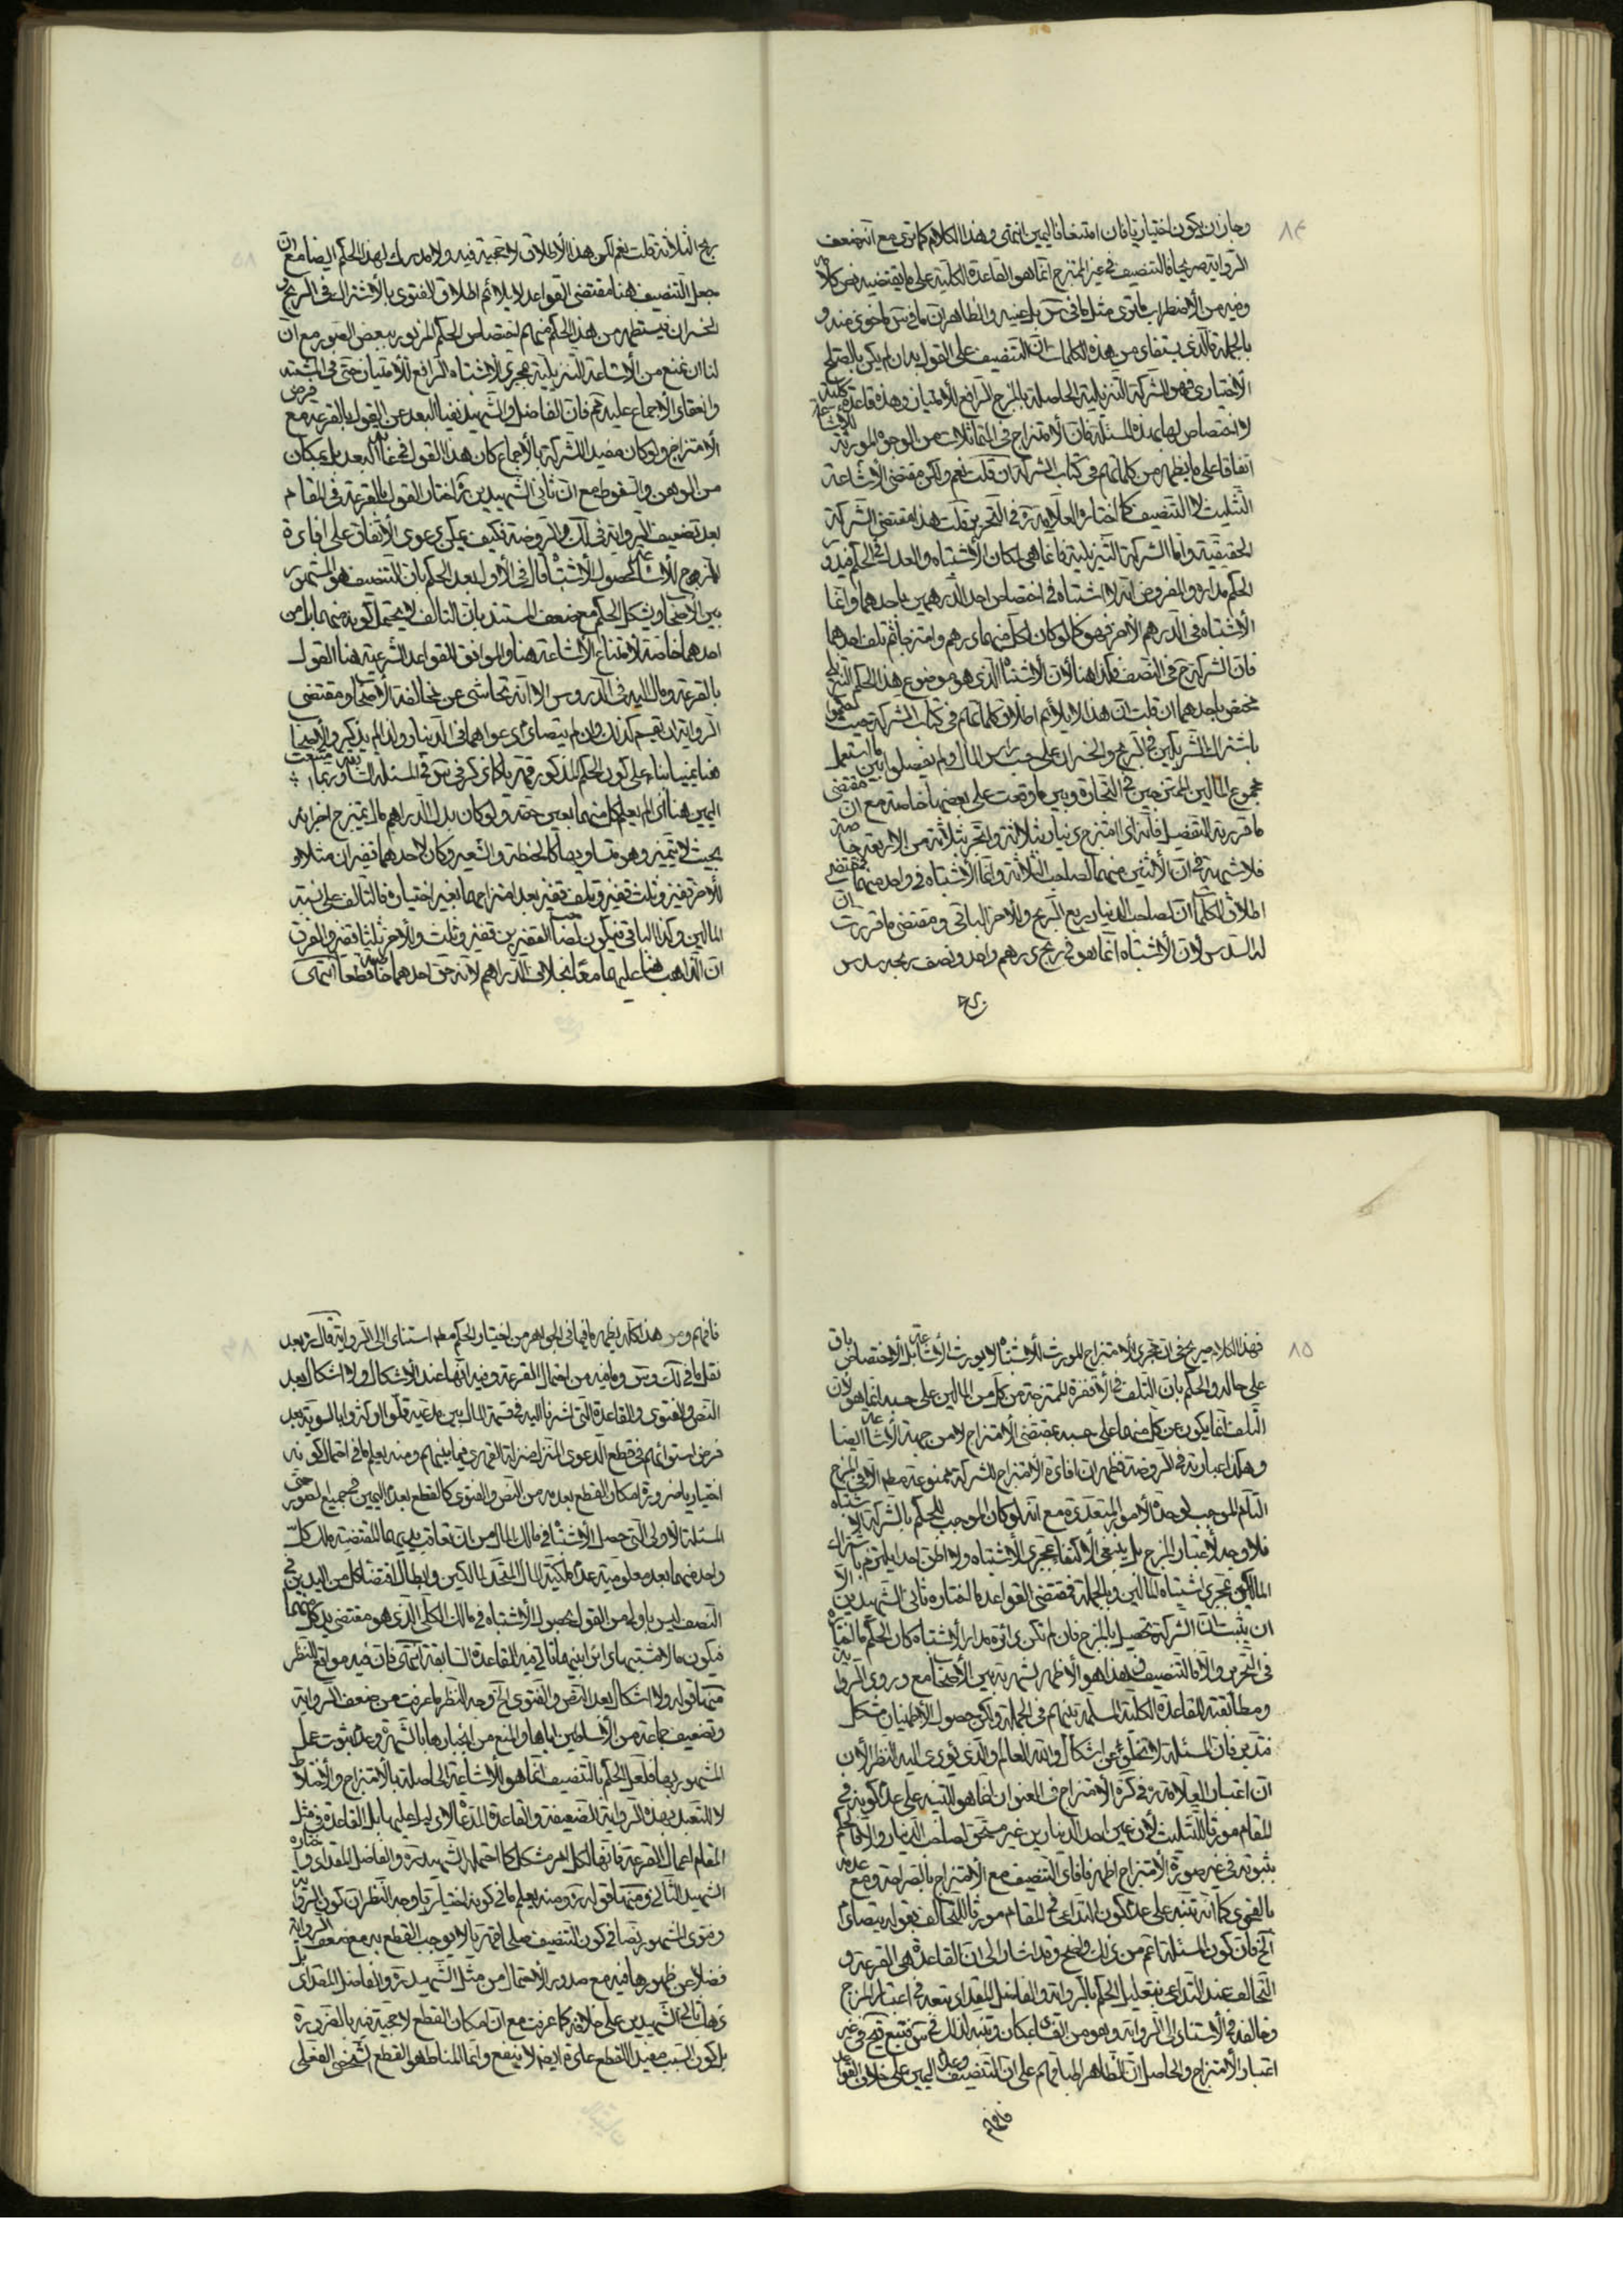 ٨٤
وجاز ان يكون اختياريا فان امتنعا فاليمين انتهى وهذا الكلام كما ترى مع انه ضعف
الرواية صريحا فالتنصيف في غير الممتزج انما هو القاعدة الكلية على ما يقتضيه نص كلامه
وفيه من الاضطراب ما ترى مثل ما في س بل عينه والظاهر ان ما في س ماخوذ منه و
بالجملة فالذي يستفاد من هذه الكلمات ان التنصيف على القول به ان لم يكن بالصلح
الاختياري فهو الشركة التنزيلية الحاصلة بالمزج الرافع للامتياز وهذه قاعدة كلية
لا اختصاص لها بهذه المسئلة فان الامتزاج في المتماثلات من الوجوه المورثة للاشاعة
اتفاقا على ما يظهر من كلماتهم في كتاب الشركة ان قلت نعم ولكن مقتضى الاشاعة
التثليث لا التنصيف كما اختاره العلامة ره في التحرير قلت هذا مقتضى الشركة
الحقيقية واما الشركة التنزيلية فانما هي لمكان الاشتباه والعدل في الحكم فيدور
الحكم مداره والمفروض انه لا اشتباه في اختصاص احد الدرهمين باحدهما وانما
الاشتباه في الدرهم الاخر فهو كما لو كان لكل منهما درهم وامتزجا ثم تلف احدهما
فان الشركة ح في النصف فكذا هنا لان الاشتباه الذي هو موضوع هذا الحكم التنزيلي
مختص باحدهما ان قلت ان هذا لا يلائم اطلاق كلماتهم في كتاب الشركة حيث حكموا
باشتراك الشريكين في الربح والخسران على حسب راس المال ولم يفصلوا بين ما استعمل
مجموع المالين الممتزجين في التجارة وبين ما وقعت على بعضهما خاصة مع ان مقتضى
ما قررت التفصيل فانه اذا امتزج دينار بثلاثة واتجر بثلاثة من الاربعة خاصة
فلا شبهة في ان الاثنين منهما لصاحب الثلاثة وانما الاشتباه في واحد منهما فمقتضى
اطلاق الكلمات ان لصاحب الدينار ربع الربح وللاخر الباقي ومقتضى ما قررت ان
له السدس لان الاشتباه انما هو في ربح درهم واحد ونصف ربحه سدس
ربح
ربح الثلاثة قلت نعم لكن هذا الاطلاق لا حجية فيه ولا مدرك لهذا الحكم ايضا مع ان
جعل التنصيف هنا مقتضى القواعد لا يلائم اطلاق الفتوى بالاشتراك في الربح و
الخسران فيستظهر من هذا الحكم منهم اختصاص الحكم المزبور ببعض الصور مع ان
لنا ان نمنع من الاشاعة التنزيلية بمجرد الاشتباه الرافع للامتياز حتى في المشتبه
وانعقاد الاجماع عليه ثم فان الفاضل والشهيد نفيا البعد عن القول بالقرعة مع فرض
الامتزاج ولو كان مفيدا للشركة بالاجماع كان هذا القول في غاية البعد بل بمكان
من الوهن والسقوط مع ان ثاني الشهيدين ره اختار القول بالقرعة في المقام
بعد تضعيف الرواية في لك والروضة فكيف يمكن دعوى الاتفاق على افادة
المزج للاشاعة لحصول الاشتباه قال في الاول بعد الحكم بان التنصيف هو المشهور
بين الاصحاب ويشكل الحكم مع ضعف المستند بان التالف لا يحتمل كونه منهما بل من
احدهما خاصة لامتناع الاشاعة هنا والموافق للقواعد الشرعية هنا القول
بالقرعة ومال اليه في الدروس الا انه تحاشى عن مخالفة الاصحاب ومقتضى
الرواية انه يقسم كذلك وان لم يتصادم دعواهما في الدينار ولذا لم يذكر والاصحاب
هنا يمينا بناء على كون الحكم المذكور قهريا كما ذكر في س في المسئلة السابقة وربما امتنعت
اليمين هنا اذا لم يعلم كل منهما بعين حقه ولو كان بدل الدراهم مال يمتزج اجزائه
بحيث لا يتميز وهو متساويها كالحنطة والشعير وكان لاحدهما قفيزان مثلا و
للاخر قفيز وتلف قفيز بعد امتزاجهما بغير اختيار فالتالف على نسبة
المالين وكذا الباقي فيكون لصاحب القفيزين قفيز وثلث وللاخر ثلثا قفيز والفرق
ان الذاهب هنا عليهما معا بخلاف الدراهم لانه حق احدهما خاصة قطعا انتهى
٨٥
فهذا الكلام صريح في ان مجرد الامتزاج المورث للاشتباه لا يورث الاشاعة بل الاختصاص باق
على حاله والحكم بان التلف في الاقفزة الممتزجة من كل من المالين على حسبه انما هو لان
التلف انما يكون من كل منهما على حسبه بمقتضى الامتزاج لا من جهة الاشاعة ايضا
وهكذا عبارته في الروضة فظهر ان افادة الامتزاج للشركة ممنوعة مطلقا الا في المزج
التام الموجب لوحدة الامور المتعددة مع انه لو كان الموجب للحكم بالشركة الاشتباه
فلا وجه لاعتبار المزج بل ينبغي الاكتفاء بمجرد الاشتباه ولا اظن احدا يلتزم باشتراك
المالكين بمجرد اشتباه المالين وبالجملة فمقتضى القواعد ما اختاره ثاني الشهيدين الا
ان يثبت ان الشركة تحصل بالمزج فان لم تكن دائرة مدار الاشتباه كان الحكم ما اختاره
في التحرير والا فالتنصيف وهذا هو الاظهر لشهرته بين الاصحاب مع ورود الرواية به
ومطابقته للقاعدة الكلية المسلمة بينهم في الجملة ولكن حصول الاطمينان مشكل
فتدبر فان المسئلة لا تخلو عن اشكال والله العالم والذي يؤدي اليه النظر الان
ان اعتبار العلامة ره في كره الامتزاج في العنوان انما هو للتنبيه على عدم كونه في
المقام موردا للتثليث لان عين احد الدينارين غير مستحق لصاحب الدينار والا فالحكم
بثبوته في غير صورة الامتزاج اظهر فافاد التنصيف مع الامتزاج بالصراحة ومع عدمه
بالفحوى كما انه تنبيه على عدم كون التداعي في المقام موردا للتحالف بقوله يتصادم
الخ فان كون المسئلة اعم من ذلك واضح وقد اشار الى ان القاعدة هي القرعة و
التحالف عند التداعي بتعليل الحكم بالرواية والفاضل المقداد تبعه في اعتبار المزج
وخالفه في الاستناد الى الرواية وهو من الغفلة بمكان وتنبه لذلك في س فتبع مع في غير
اعتبار الامتزاج والحاصل ان الظاهر اطباقهم على ان التنصيف وعدم اليمين على خلاف القواعد
فافهم
فافهم ومن هذا كله يظهر ما فيما في الجواهر من اختيار الحكم مطلقا استنادا الى الرواية قال ره بعد
نقل ما في لك و س وما فيه من احتمال القرعة وفيه انها عند الاشكال ولا اشكال بعد
النص والفتوى والقاعدة التي اشرنا اليه في قسمة المال بين مدعيه قلوا او كثروا بالسوية بعد
فرض استوائهم في قطع الدعوى المنزل منزلة القهري فيما بينهم ومنه يعلم ما في احتمال كونه
اختياريا ضرورة امكان القطع بعدمه من النص والفتوى كالقطع بعدم اليمين في جميع الصور حتى
المسئلة الاولى التي حصل الاشتباه في مالك المال من ان تعلق يديهما المقتضية ملك كل
واحد منهما بعد معلومية عدم ملكية المال المتحد لمالكين وابطال اقتضاء كل من اليدين في
النصف ليس باولى من القول بحصول الاشتباه في مالك الكلي الذي هو مقتضى يد كل منهما
فيكون مالا مشتبها دائرا بينهما فتاتي فيه القاعدة السابقة انتهى فان فيه مواقع للنظر
منها قوله ولا اشكال بعد النص والفتوى الخ وجه النظر ما عرفت من ضعف الرواية
وتضعيف جماعة من الاساطين اياها والمنع من انجبارها بالشهرة وعدم ثبوت عمل
المشهور بها فلعل الحكم بالتنصيف انما هو للاشاعة الحاصلة بالامتزاج والاختلاط
لا للتعبد بهذه الرواية الضعيفة والقاعدة المدعاة لا دليل عليها بل القاعدة في مثل
المقام اعمال القرعة فانها لكل امر مشكل كما احتمله الشهيد ره والفاضل المقداد واختاره
الشهيد الثاني ومنها قوله ره ومنه يعلم ما في كونه اختياريا وجه النظر ان كون الرواية
وفتوى المشهور نصا في كون التنصيف صلحا قهريا لا يوجب القطع به مع ضعف الرواية
فضلا عن ظهورها فيه مع صدور الاحتمال من مثل الشهيد ره والفاضل المقداد بل
ذهاب ثاني الشهيدين على خلافه كما عرفت مع ان امكان القطع لا حجية فيه بالضرورة
بل كون السبب مفيدا للقطع عادة ايضا لا ينفع وانما المناط هو القطع الشخصي الفعلي